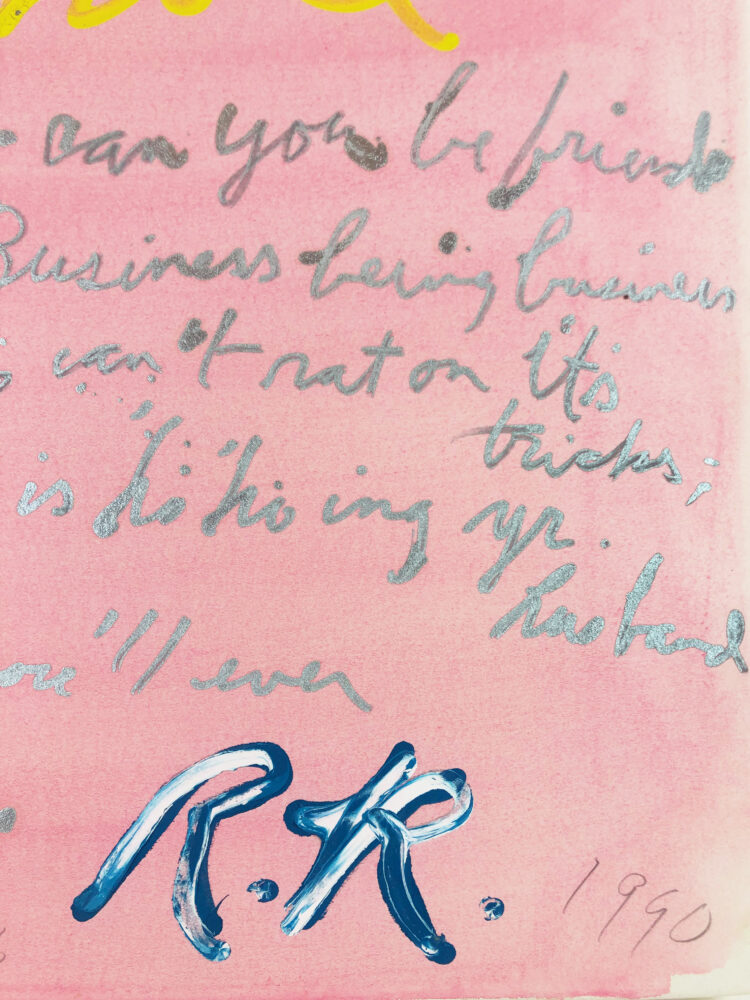 can you be friends
Business being business
can't rat on it's
tricks;
is "ho" "ho ing yr.
husband
'll ever
R.R.
1990